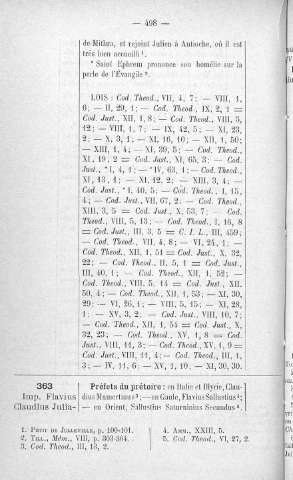 — 498 —
de Mithra, et rejoint Julien à Antioche, où il est
très bien accueilli ¹.
* Saint Ephrem prononce son homélie sur la
perle de l'Évangile ².
LOIS : Cod. Theod., VII, 4, 7; — VIII, 1,
6; — II, 29, 1; — Cod. Theod., IX, 2, 1 =
Cod. Just., XII, 1, 8; — Cod. Theod., VIII, 5,
12; — VIII, 1, 7; — IX, 42, 5; — XI, 23,
2; — X, 3, 1; — XI, 16, 10; — XII, 1, 50;
— XIII, 1, 4; — XI, 39, 5; — Cod. Theod.,
XI, 19, 2 = Cod. Just., XI, 65, 3; — Cod.
Just., *I, 4, 1; — *IV, 63, 1; — Cod. Theod.,
XI, 13, 1; — XI, 12, 2; — XIII, 3, 4; —
Cod. Just., *I, 40, 5; — Cod. Theod., I, 15,
4; — Cod. Just., VII, 67, 2. — Cod. Theod.,
XIII, 3, 5 = Cod. Just., X, 53, 7; — Cod.
Theod., VIII, 5, 13; — Cod. Theod., I, 16, 8
= Cod. Just., III, 3, 5 = C. I. L., III, 459;
— Cod. Theod., VII, 4, 8; — VI, 24, 1; —
Cod. Theod., XII, 1, 51 = Cod. Just., X, 32,
22; — Cod. Theod., II, 5, 1 = Cod. Just.,
III, 40, 1; — Cod. Theod., XII, 1, 52; —
Cod. Theod., VIII, 5, 14 = Cod. Just., XII,
50, 4; — Cod. Theod., XII, 1, 53; — XI, 30,
29; — VI, 26, 1; — VIII, 5, 15; — XI, 28,
1; — XV, 3, 2; — Cod. Just., VIII, 10, 7;
— Cod. Theod., XII, 1, 54 = Cod. Just., X,
32, 23; — Cod. Theod., XV, 1, 8 = Cod.
Just., VIII, 11, 3; — Cod. Theod., XV, 1, 9 =
Cod. Just., VIII, 11, 4; — Cod. Theod., III, 1,
3; — IV, 11, 6; — XV, 1, 10; — XI, 30, 30.
363
Imp. Flavius
Claudius Julia-
Préfets du prétoire : en Italie et Illyrie, Clau-
dius Mamertinus ³; — en Gaule, Flavius Sallustius ⁴;
— en Orient, Sallustius Saturninius Secundus ⁵.
1. PETIT DE JULLEVILLE, p. 100-101.
2. TILL., Mém., VIII, p. 303-304.
3. Cod. Theod., III, 13, 2.
4. AMM., XXIII, 5.
5. Cod. Theod., VI, 27, 2.